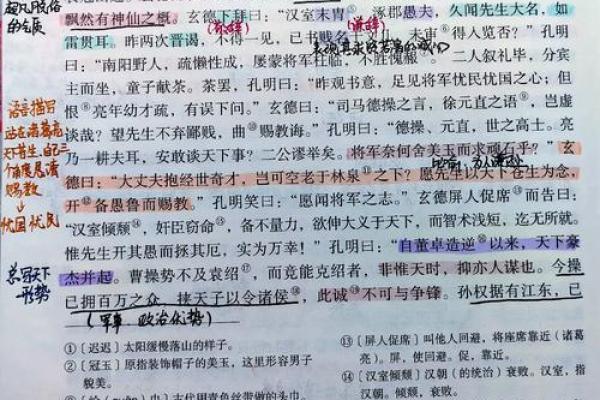 超凡脱俗
的气质
飘然有神仙之概。玄德下拜曰：“汉室末胄，涿郡愚夫，久闻先生大名，如
(谦辞)
(谦辞)
雷贯耳。昨两次晋谒，不得一见，已书贱名于文几，未审得入览否？”孔明
曰：“南阳野人，疏懒性成，屡蒙将军枉临，不胜愧赧。”二人叙礼毕，分宾
主而坐，童子献茶。茶罢，孔明曰：“昨观书意，足见将军忧民忧国之心；但
恨⑧亮年幼才疏，有误下问。”玄德曰：“司马德操之言，徐元直之语⑨，岂虚
语言描写
谈哉？望先生不弃鄙贱，曲⑩赐教诲。”孔明曰：“德操、元直，世之高士。亮
站在诸葛亮
天下苍生、自己三
乃一耕夫耳，安敢谈天下事？二公谬举矣。将军奈何舍美玉而求顽石乎？”玄
个角度恳请
赐教
德曰：“大丈夫抱经世奇才，岂可空老于林泉⑪之下？愿先生以天下苍生为念，
开⑫备愚鲁而赐教。”孔明笑曰：“愿闻将军之志。”玄德屏人促席⑬而告曰：
忧国忧民
“汉室倾颓⑭，奸臣窃命⑮，备不量力，欲伸大义于天下，而智术浅短，迄无所就。
惟先生开其愚而拯其厄，实为万幸！”孔明曰：“自董卓造逆⑯以来，天下豪
总写天下
形势
杰并起。曹操势不及袁绍⑰，而竟能克绍者，非惟天时，抑亦人谋也。今操
已拥百万之众，挟天子以令诸侯⑱，此诚⑲不可与争锋。孙权据有江东，已
(军事、政治优势)
①〔迟迟〕太阳缓慢落山的样子。
②〔冠玉〕原指装饰帽子的美玉，这里形容男子
貌美。
古代用青色丝带做的头巾。
⑬〔屏人促席〕叫他人回避，将座席靠近（诸葛
亮）。屏，使回避。促，靠近。
⑭〔汉室倾颓〕汉朝（的统治）衰败。汉室，
汉朝。倾颓，衰败。